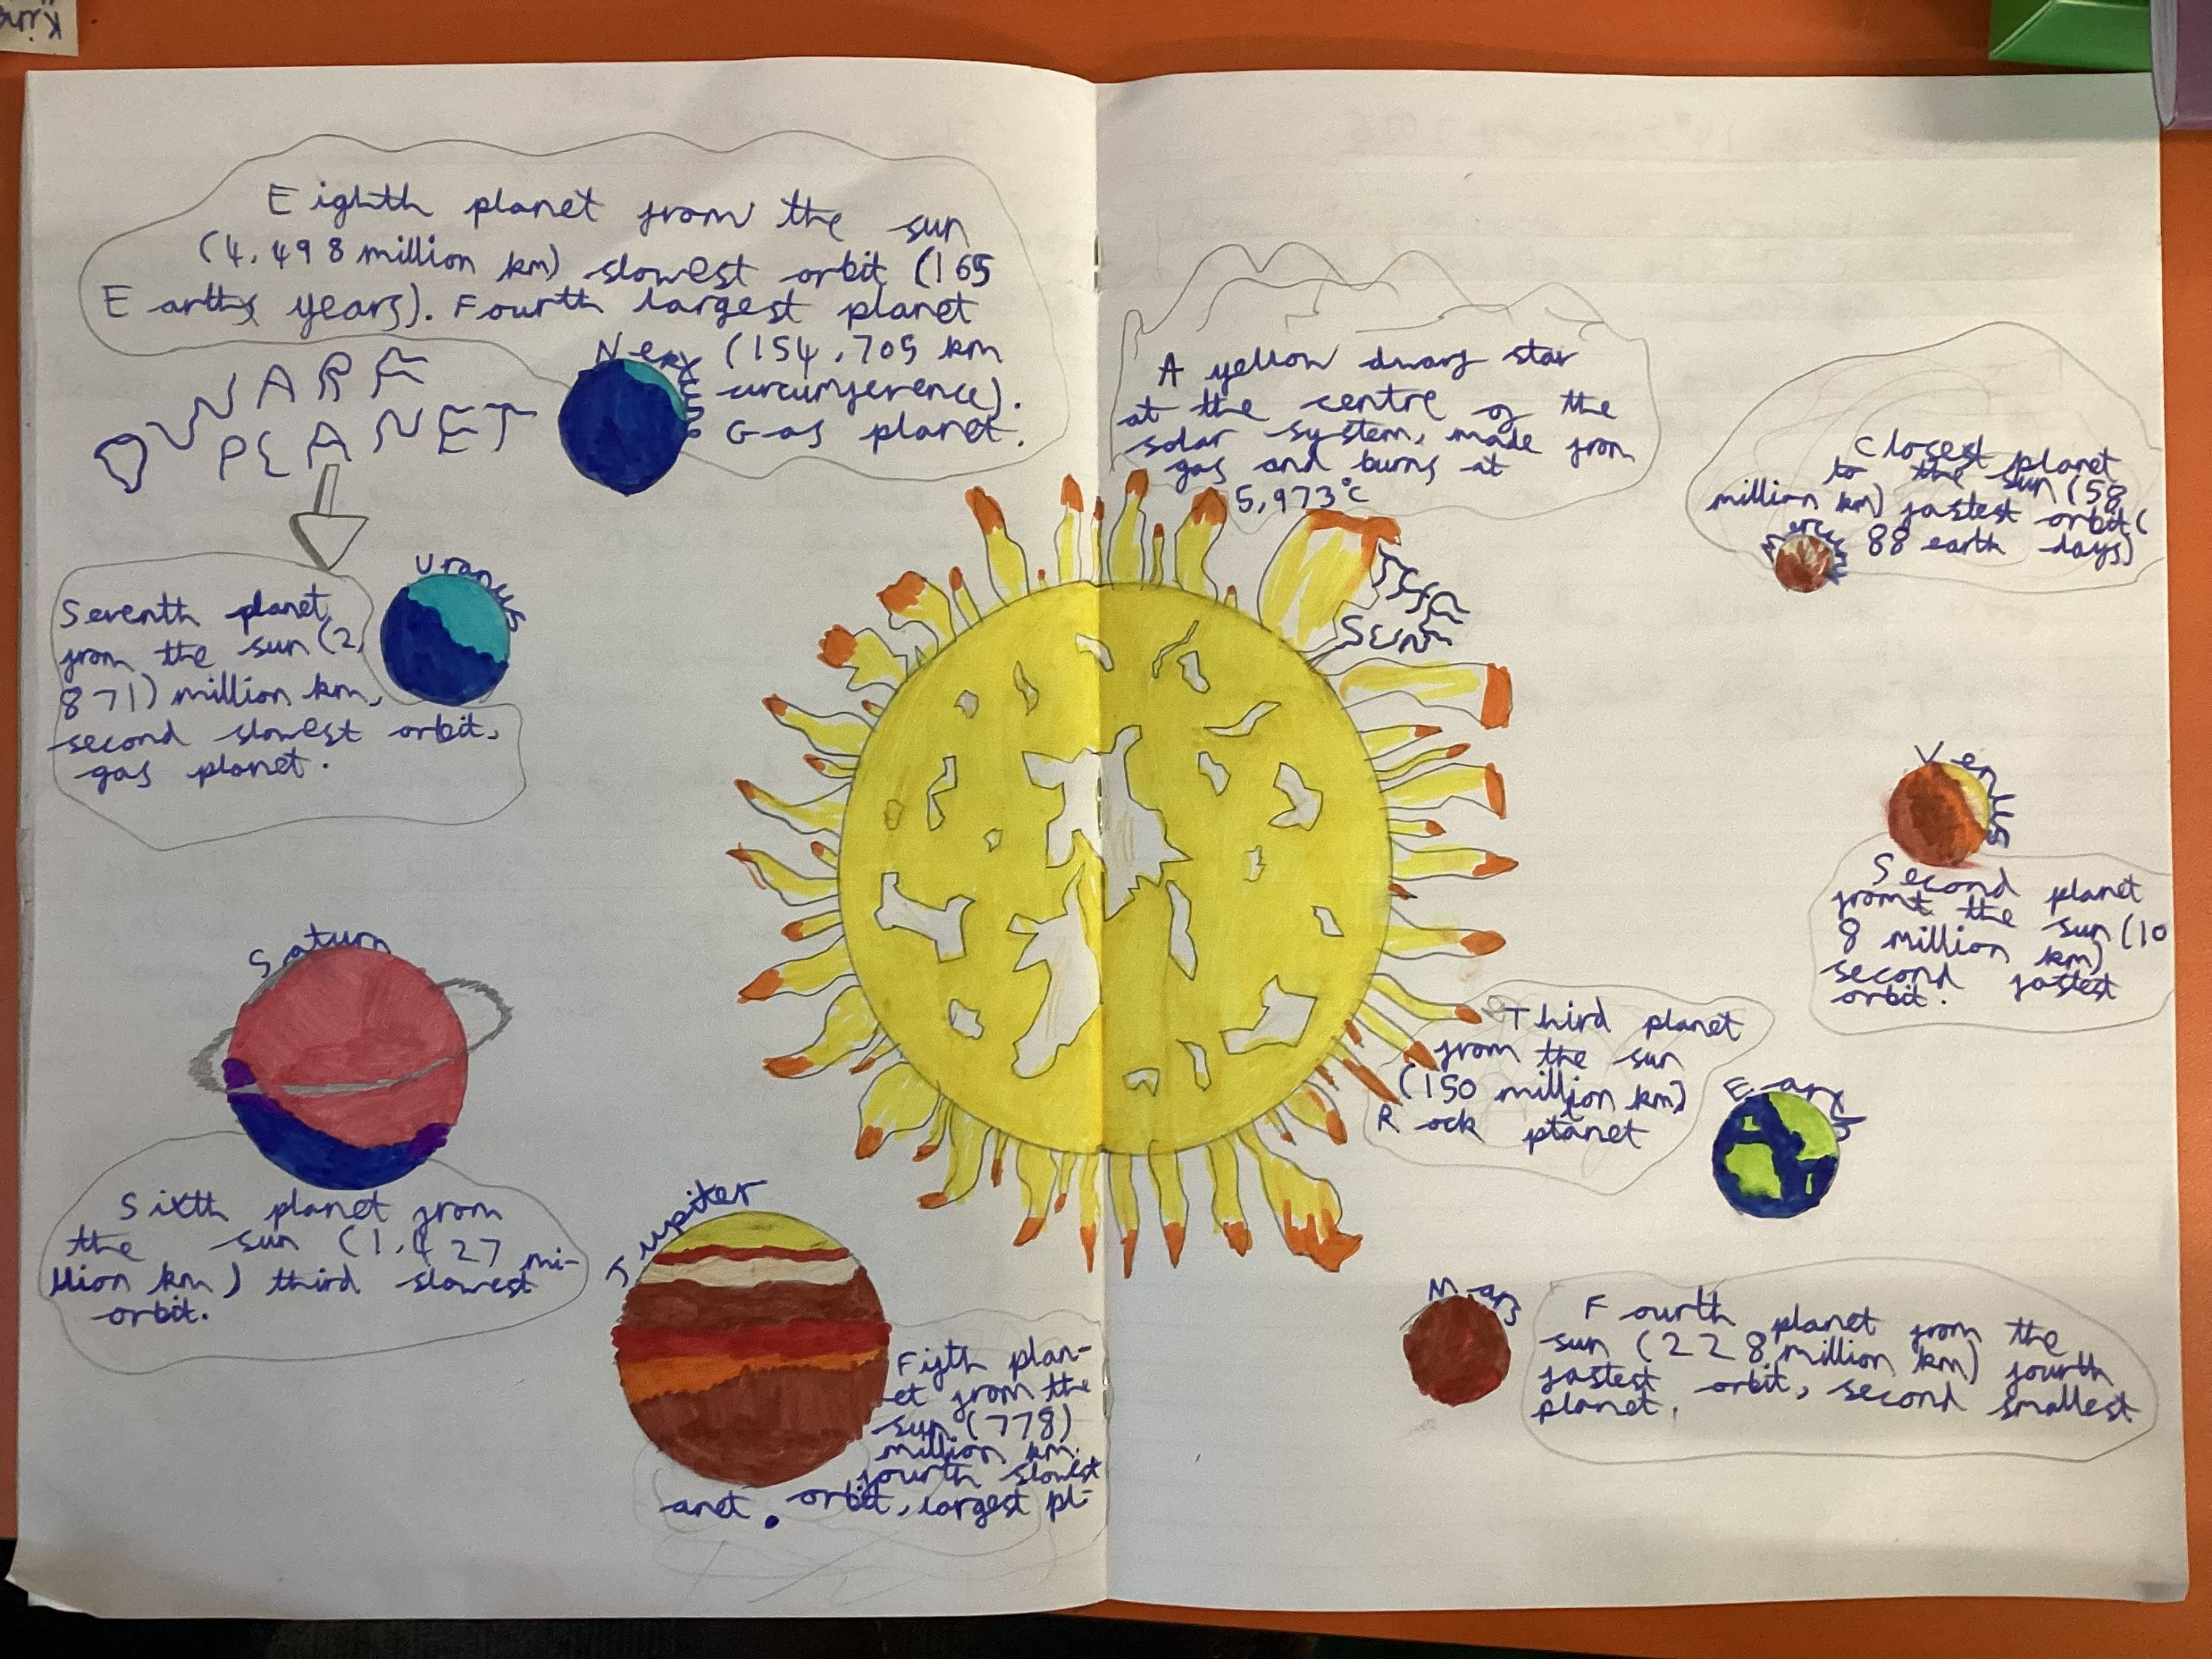 Eighth planet from the sun
(4,498 million km) slowest orbit (165
Earths years). Fourth largest planet
(154,705 km
circumference).
Gas planet.
DWARF
PLANET
Uranus
Seventh planet
from the sun (2,
871) million km,
second slowest orbit,
gas planet.
Saturn
Sixth planet from
the sun (1,427 mi-
llion km) third slowest
orbit.
Jupiter
Fifth plan-
et from the
sun (778)
million km.
fourth slowest
orbit, largest pl-
anet.
A yellow dwarf star
at the centre of the
solar system, made from
gas and burns at
5,973°c
The
Sun
Closest planet
to the sun (58
million km) fastest orbit (
88 earth days)
Venus
Second planet
from the sun (10
8 million km)
second fastest
orbit.
Third planet
from the sun
(150 million km)
Rock planet
Mars
Fourth planet from the
sun (228 million km) fourth
fastest orbit, second smallest
planet.